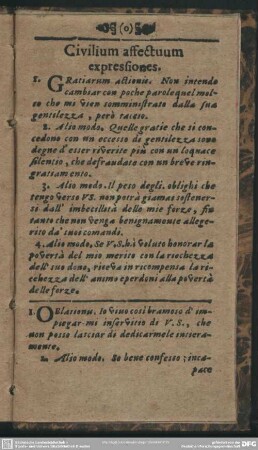 (o)
Civilium affectuum
expressiones.
1. GRatiarum actionis. Non intendo
cambiar con poche parole quel mol-
to che mi vien somministrato dalla sua
gentilezza, però taccio.
2. Alio modo. Quelle gratie che si con-
cedono con un eccesso di gentilezza sono
degne d'esser riverite più con un loquace
silentio, che defraudate con un breve rin-
gratiamento.
3. Alio modo. Il peso degli oblighi che
tengo verso VS. non potrà giamai sostener-
si dall' imbecillità delle mie forze, fin
tanto che non venga benignamente allege-
rito da' suoi comandi.
4. Alio modo. Se V.S. hà voluto honorar la
povertà del mio merito con la ricchezza
dell' suo dono, riceva in ricompensa la ric-
chezza dell' animo e perdoni alla povertà
delle forze.
1. OBlationis. Io vivo così bramoso d' im-
piegarmi in servitio di V.S., che
non posso lasciar di dedicarmele intiera-
mente.
2. Alio modo. So bene confesso; inca-
pace